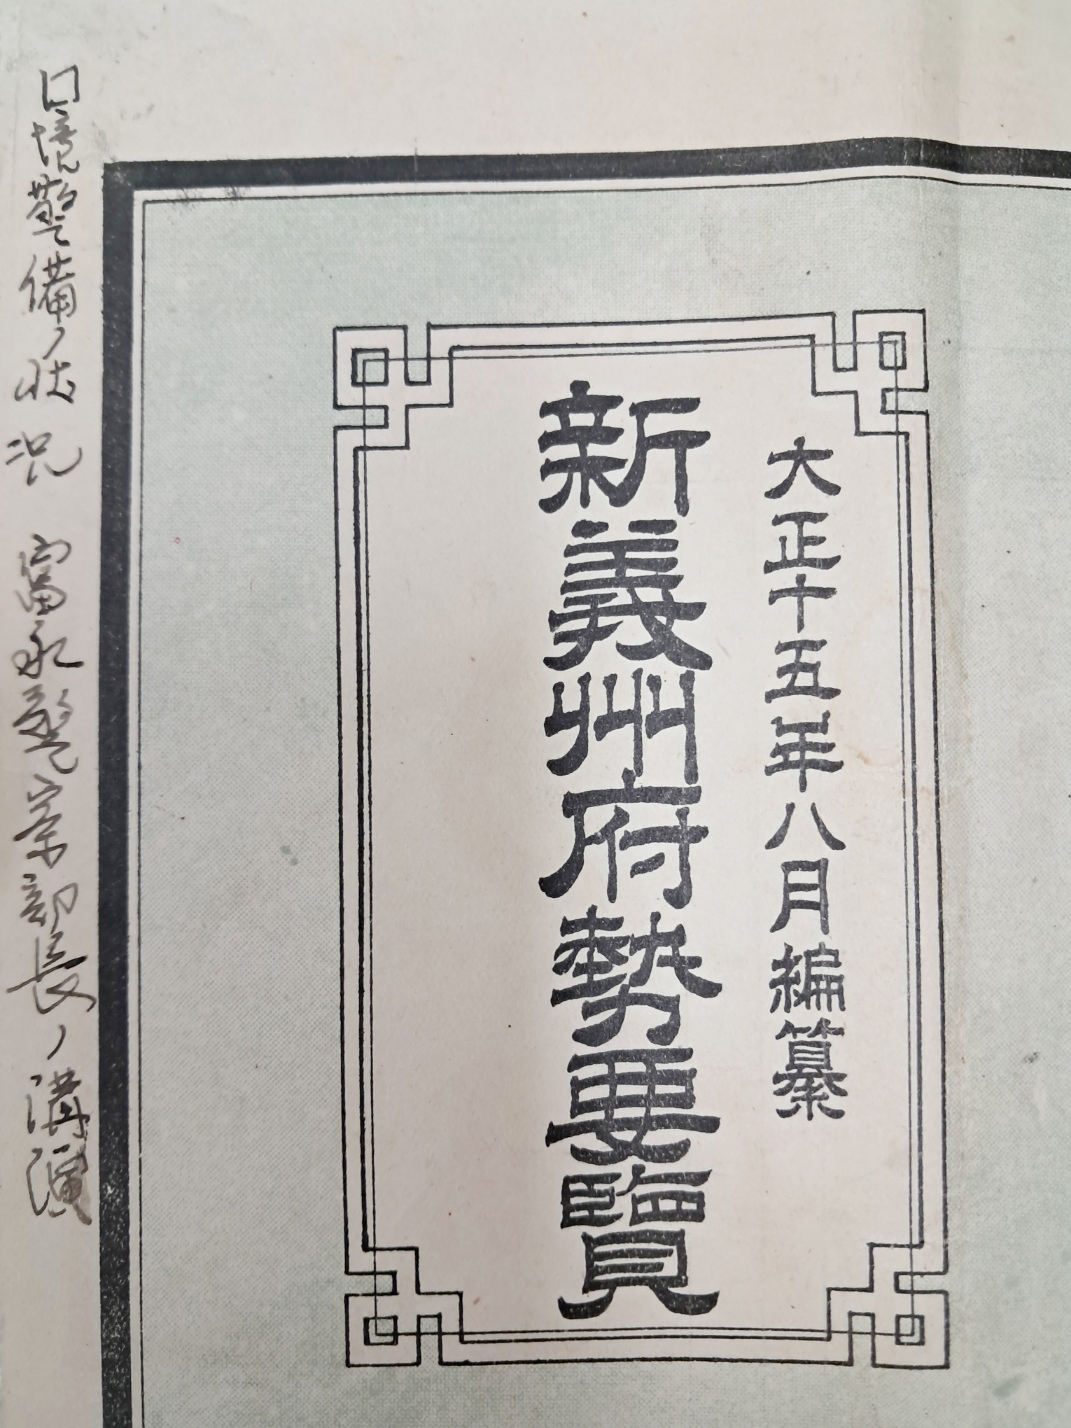 大正十五年八月編纂
新義州府勢要覽
囗境警備ノ状況 富永警察部長ノ講演